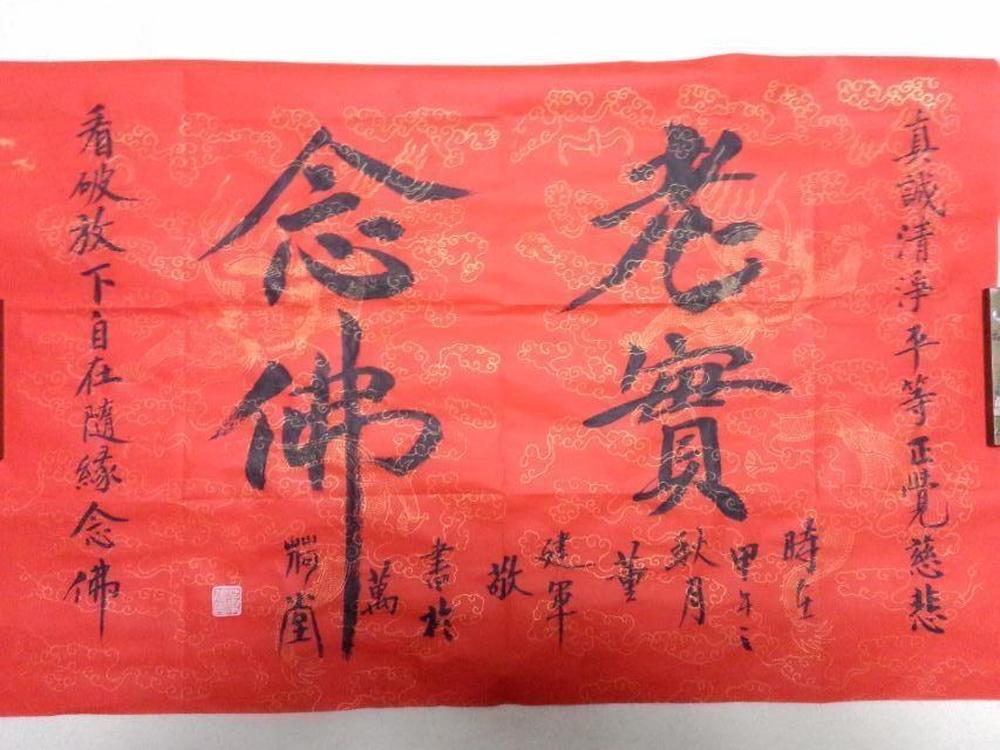 真誠清淨平等正覺慈悲
老實
念佛
時在
甲午年
秋月
董
建軍
敬
書於
萬
堂
看破放下自在隨緣念佛